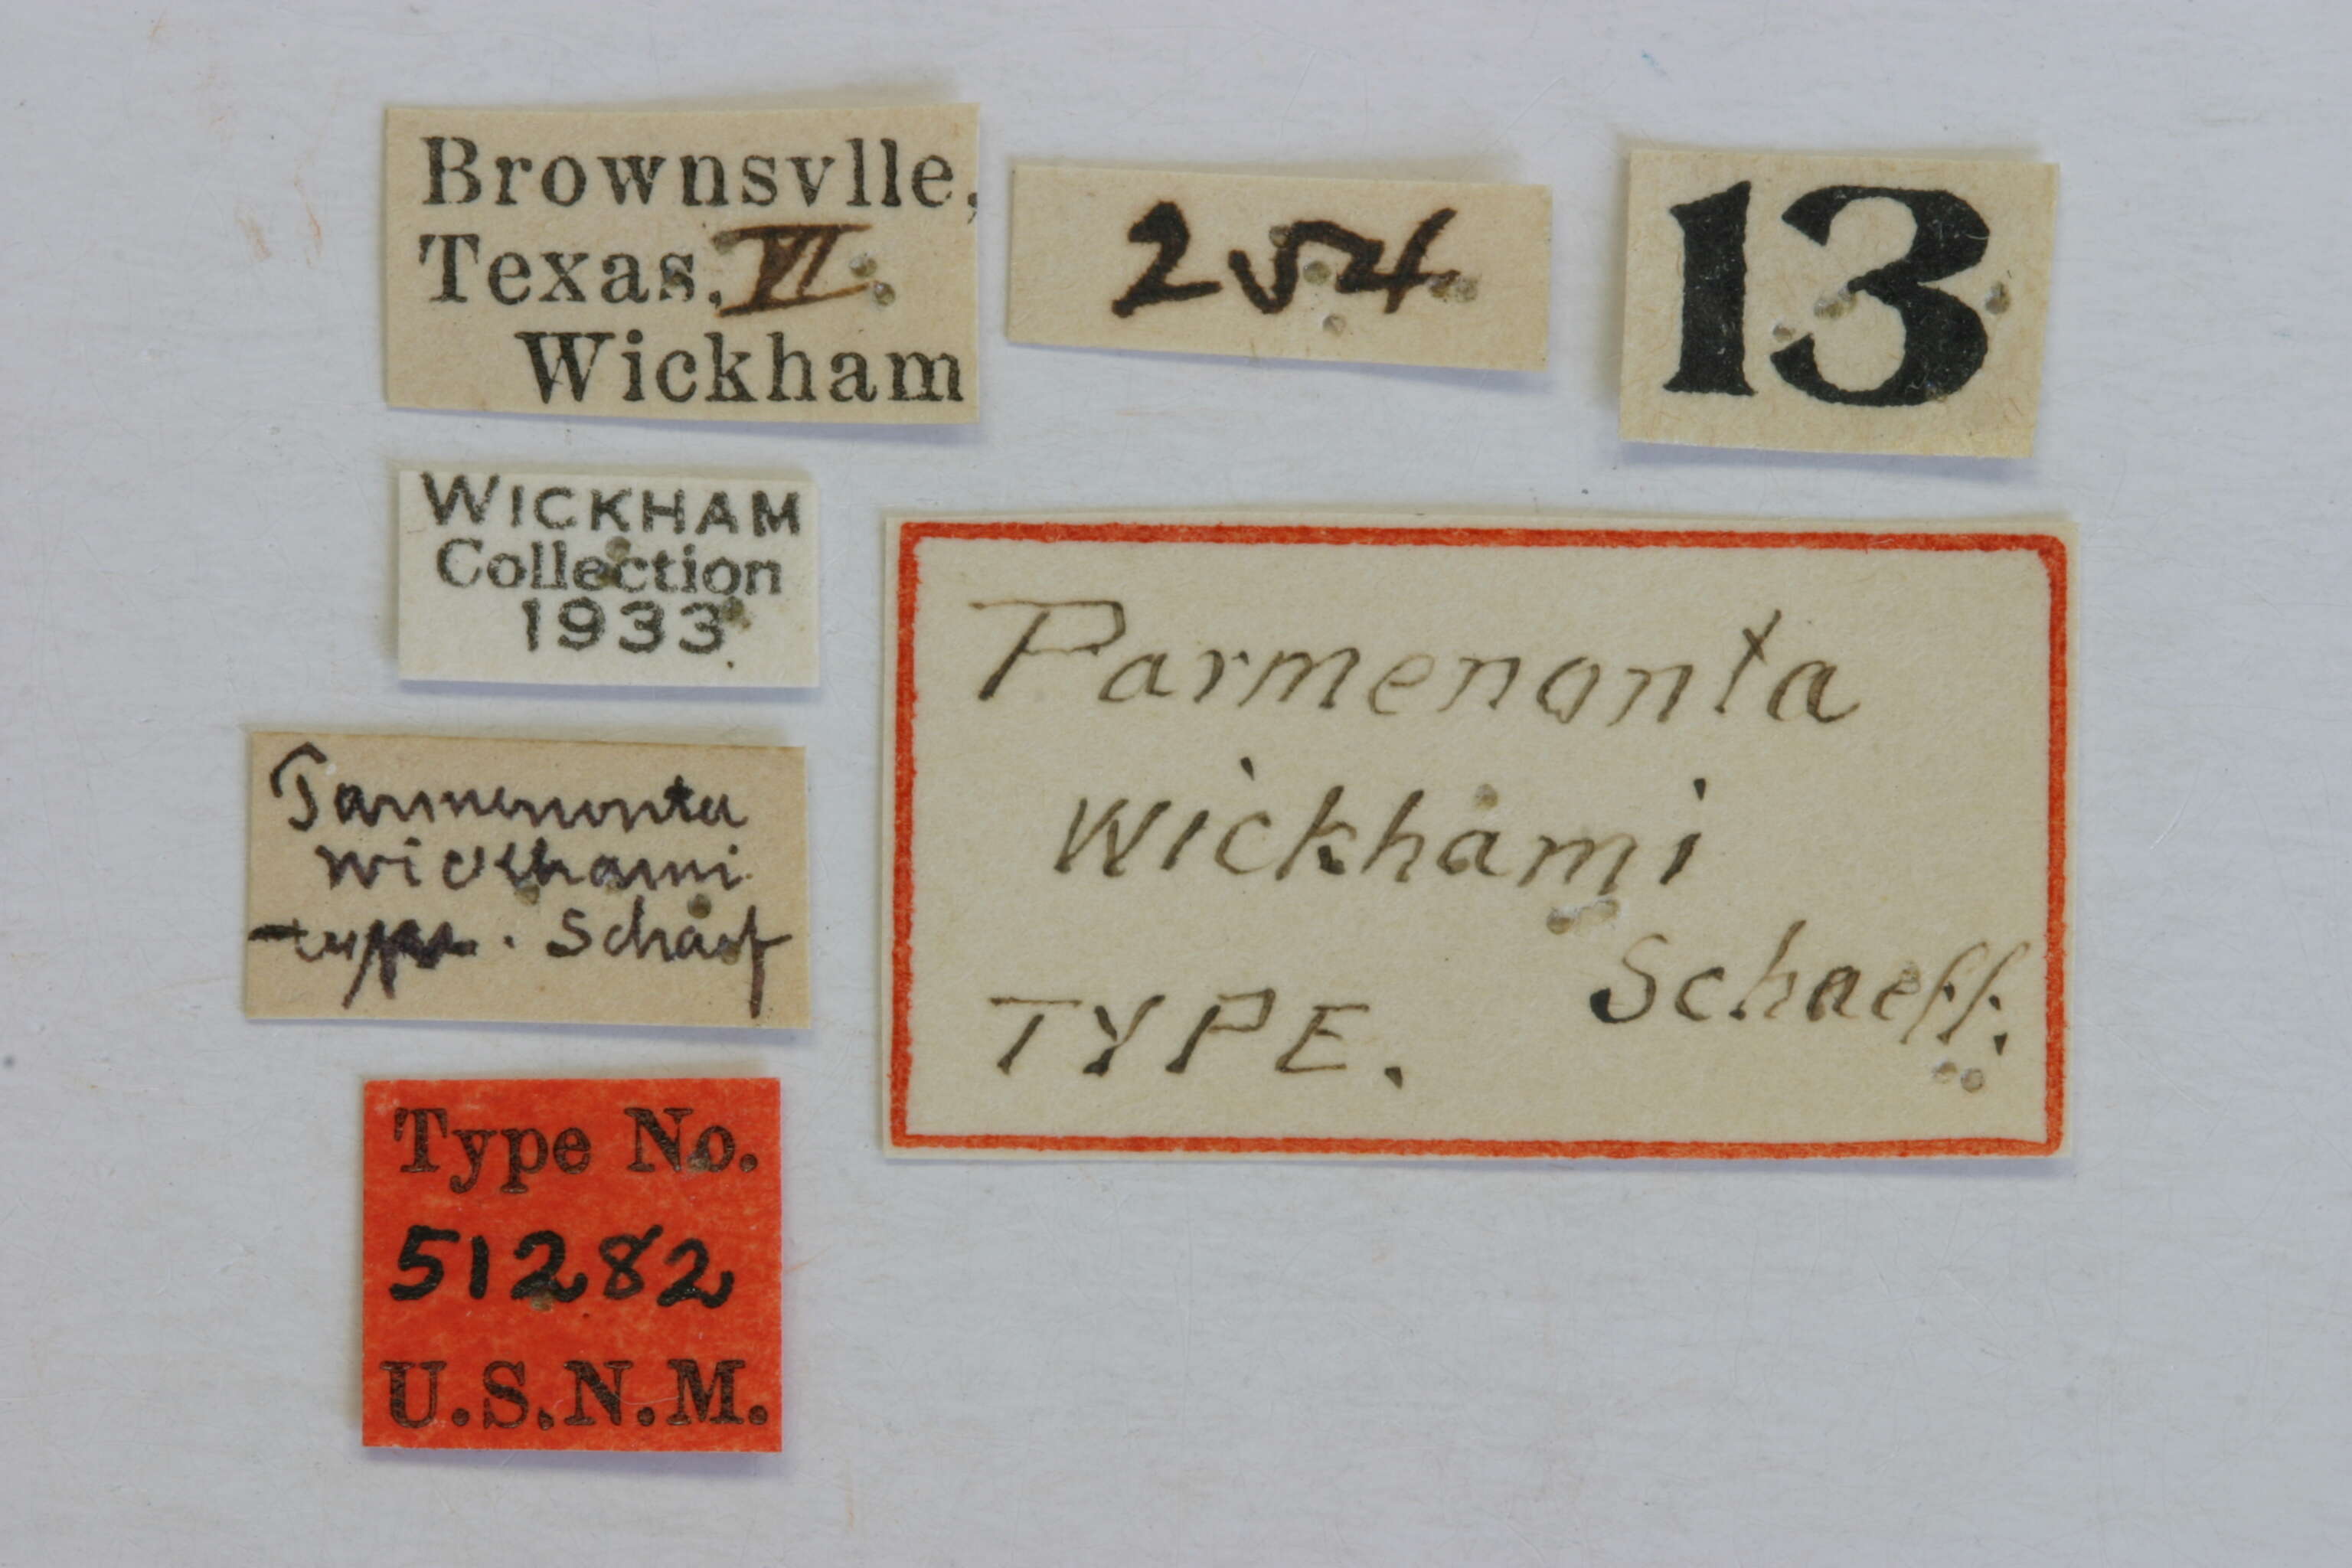 Brownsvlle,
Texas. VI.
Wickham
254
13
WICKHAM
Collection
1933
Parmenonta
wickhami
type. Schaef
Parmenonta
Wickhami
Schaeff.
TYPE.
Type No.
51282
U.S.N.M.